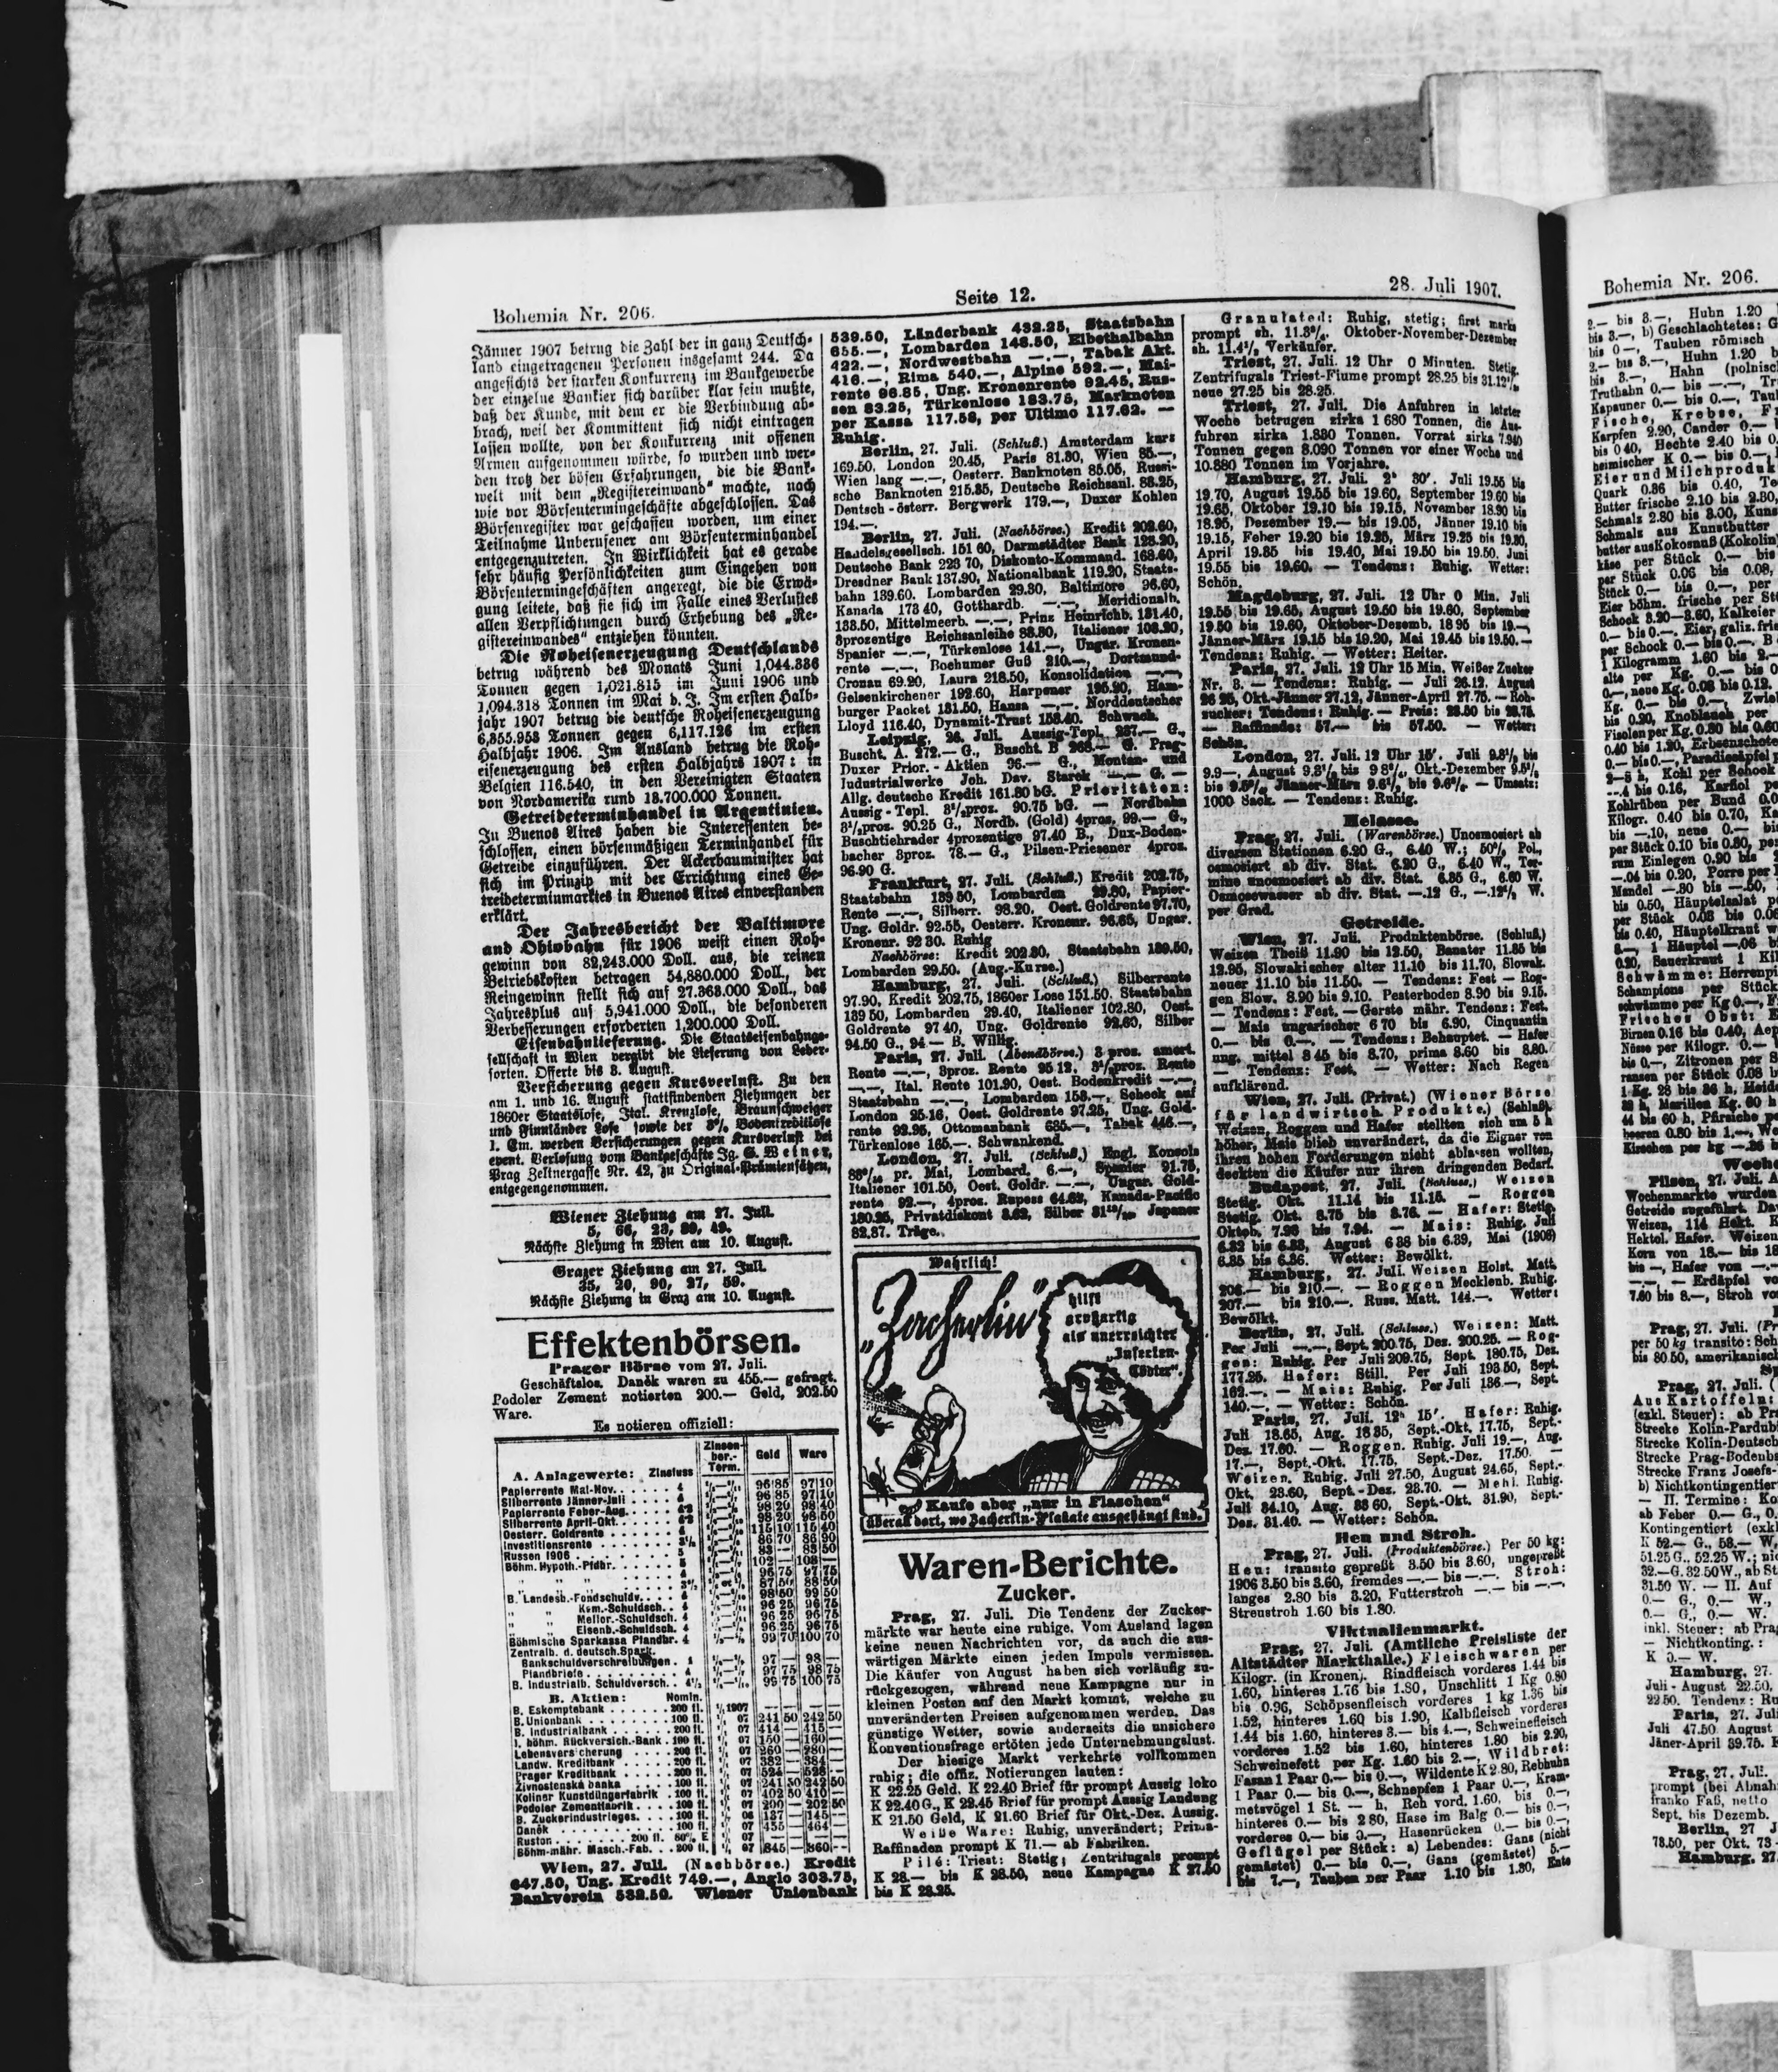 Bohemia Nr. 206.
Seite 12.
28. Juli 1907.
Jänner 1907 betrug die Zahl der in ganz Deutsch-
land eingetragenen Personen insgesamt 244. Da
angesichts der starken Konkurrenz im Bankgewerbe
der einzelne Bankier sich darüber klar sein mußte,
daß der Kunde, mit dem er die Verbindung ab-
brach, weil der Kommittent sich nicht eintragen
lassen wollte, von der Konkurrenz mit offenen
Armen aufgenommen würde, so wurden und wer-
den trotz der bösen Erfahrungen, die die Bank-
welt mit dem „Registereinwand" machte, nach
wie vor Börsentermingeschäfte abgeschlossen. Das
Börsenregister war geschaffen worden, um einer
Teilnahme Unberufener am Börsenterminhandel
entgegenzutreten. In Wirklichkeit hat es gerade
sehr häufig Persönlichkeiten zum Eingehen von
Börsentermingeschäften angeregt, die die Erwä-
gung leitete, daß sie sich im Falle eines Verlustes
allen Verpflichtungen durch Erhebung des „Re-
gistereinwandes" entziehen könnten.
Die Roheisenerzeugung Deutschlands
betrug während des Monats Juni 1,044.336
Tonnen gegen 1,021.815 im Juni 1906 und
1,094.318 Tonnen im Mai d. J. Im ersten Halb-
jahr 1907 betrug die deutsche Roheisenerzeugung
6,355.953 Tonnen gegen 6,117.126 im ersten
Halbjahr 1906. Im Ausland betrug die Roh-
eisenerzeugung des ersten Halbjahrs 1907: in
Belgien 116.540, in den Vereinigten Staaten
von Nordamerika rund 13.700.000 Tonnen.
Getreideterminhandel in Argentinien.
In Buenos Aires haben die Interessenten be-
schlossen, einen börsenmäßigen Terminhandel für
Getreide einzuführen. Der Ackerbauminister hat
sich im Prinzip mit der Errichtung eines Ge-
treideterminmarktes in Buenos Aires einverstanden
erklärt.
Der Jahresbericht der Baltimore
and Ohiobahn für 1906 weist einen Roh-
gewinn von 82,243.000 Doll. aus, die reinen
Betriebskosten betragen 54,880.000 Doll., der
Reingewinn stellt sich auf 27.363.000 Doll., das
Jahresplus auf 5,941.000 Doll., die besonderen
Verbesserungen erforderten 1,200.000 Doll.
Eisenbahnlieferung. Die Staatseisenbahnge-
sellschaft in Wien vergibt die Lieferung von Leder-
sorten. Offerte bis 8. August.
Versicherung gegen Kursverlust. Zu den
am 1. und 16. August stattfindenden Ziehungen der
1860er Staatslose, Ital. Kreuzlose, Braunschweiger
und Finnländer Lose sowie der 3% Bodenkreditlose
1. Em. werden Versicherungen gegen Kursverlust bei
event. Verlosung vom Bankgeschäfte Jg. G. Weiner,
Prag Zeltnergasse Nr. 42, zu Original-Prämiensätzen,
entgegengenommen.
Wiener Ziehung am 27. Juli.
5, 66, 23, 89, 49.
Nächste Ziehung in Wien am 10. August.
Grazer Ziehung am 27. Juli.
35, 20, 90, 27, 59.
Nächste Ziehung in Graz am 10. August.
Effektenbörsen.
Prager Börse vom 27. Juli.
Geschäftslos. Daněk waren zu 455.— gefragt.
Podoler Zement notierten 200.— Geld, 202.50
Ware.
Es notieren offiziell:
A. Anlagewerte: Zinsfuss Zinsen-ber.-Term. Geld Ware
Papierrente Mai-Nov. 4 96 85 97 10
Silberrente Jänner-Juli 4 96 85 97 10
Papierrente Feber-Aug. 98 20 98 40
Silberrente April-Okt. 98 20 98 50
Oesterr. Goldrente 4 115 10 115 40
Investitionsrente 86 70 86 90
Russen 1906 5 83 — 83 50
Böhm. Hypoth.-Pfdbr. 5 102 — 103 —
" " 4 96 75 97 75
87 50 88 50
B. Landesb.-Fondschuldv. 98 60 99 50
" " Kom.-Schuldsch. 4 96 25 96 75
" " Melior.-Schuldsch. 4 96 25 96 75
" " Eisenb.-Schuldsch. 4 96 25 96 75
Böhmische Sparkassa Pfandbr. 4 99 70 100 70
Zentralb. d. deutsch. Spark.
Bankschuldverschreibungen 97 — 98 —
Pfandbriefe 97 75 98 75
B. Industrialb. Schuldversch. 4½ 99 75 100 75
B. Aktien: Nomin.
B. Eskomptebank 200 fl. 1907 — —
B. Unionbank 100 fl. 07 241 50 242 50
B. Industrialbank 200 fl. 07 414 — 415 —
I. böhm. Rückversich.-Bank 100 fl. 07 150 — 160 —
Lebensversicherung 200 fl. 07 260 — 280 —
Landw. Kreditbank 200 fl. 07 382 — 384 —
Prager Kreditbank 200 fl. 07 524 — 528 —
Živnostenská banka 100 fl. 07 241 50 242 50
Koliner Kunstdüngerfabrik 100 fl. 07 402 50 410 —
Podoler Zementfabrik 100 fl. 07 200 — 202 50
B. Zuckerindustrieges. 100 fl. 06 137 — 145 —
Daněk 100 fl. 07 455 — 464 —
Ruston 200 fl. 60% E 07 — —
Böhm-mähr. Masch.-Fab. 200 fl. 07 845 — 860 —
Wien, 27. Juli. (Nachbörse.) Kredit
647.50, Ung. Kredit 749.—, Anglo 303.75,
Bankverein 532.50. Wiener Unionbank
539.50, Länderbank 432.25, Staatsbahn
655.—, Lombarden 143.50, Elbethalbahn
422.—, Nordwestbahn —.—, Tabak Akt.
416.—, Rima 540.—, Alpine 592.—, Mai-
rente 96.85, Ung. Kronenrente 92.45, Rus-
sen 83.25, Türkenlose 183.75, Marknoten
per Kassa 117.58, per Ultimo 117.62. —
Ruhig.
Berlin, 27. Juli. (Schluß.) Amsterdam kurs
169.50, London 20.45, Paris 81.30, Wien 85.—,
Wien lang —.—, Oesterr. Banknoten 85.05, Russi-
sche Banknoten 215.35, Deutsche Reichsanl. 83.25,
Deutsch-österr. Bergwerk 179.—, Duxer Kohlen
194.—.
Berlin, 27. Juli. (Nachbörse.) Kredit 202.60,
Handelsgesellsch. 151 60, Darmstädter Bank 128.20,
Deutsche Bank 223 70, Diskonto-Kommand. 168.60,
Dresdner Bank 137.90, Nationalbank 119.20, Staats-
bahn 139.60. Lombarden 29.30, Baltimore 96.60,
Kanada 173 40, Gotthardb. —.—, Meridionalb.
138.50, Mittelmeerb. —.—, Prinz Heinrichb. 131.40,
3prozentige Reichsanleihe 83.30, Italiener 103.20,
Spanier —.—, Türkenlose 141.—, Ungar. Kronen-
rente —.—, Bochumer Guß 210.—, Dortmund-
Cronau 69.20, Laura 218.50, Konsolidation —.—,
Gelsenkirchener 192.60, Harpener 195.20, Ham-
burger Packet 131.50, Hansa —.—, Norddeutscher
Lloyd 116.40, Dynamit-Trust 153.40. Schwach.
Leipzig, 26. Juli. Aussig-Tepl. 237.— G.,
Buscht. A. 272.— G., Buscht. B 263.— G. Prag-
Duxer Prior.-Aktien 96.— G., Montan- und
Industrialwerke Joh. Dav. Starck —.— G. —
Allg. deutsche Kredit 161.80 bG. Prioritäten:
Aussig-Tepl. 3½proz. 90.75 bG. — Nordbahn
3½proz. 90.25 G., Nordb. (Gold) 4proz. 99.— G.,
Buschtiehrader 4prozentige 97.40 B., Dux-Boden-
bacher 3proz. 78.— G., Pilsen-Priesener 4proz.
96.90 G.
Frankfurt, 27. Juli. (Schluß.) Kredit 202.75,
Staatsbahn 139 50, Lombarden 29.30, Papier-
Rente —.—, Silberr. 98.20, Oest. Goldrente 97.70,
Ung. Goldr. 92.55, Oesterr. Kronenr. 96.65, Ungar.
Kronenr. 92 30. Ruhig
Nachbörse: Kredit 202.80, Staatsbahn 139.50,
Lombarden 29.50. (Aug.-Kurse.)
Hamburg, 27. Juli. (Schluß.) Silberrente
97.90, Kredit 202.75, 1860er Lose 151.50. Staatsbahn
139 50, Lombarden 29.40, Italiener 102.80, Oest.
Goldrente 97 40, Ung. Goldrente 92.60, Silber
94.50 G., 94.— B. Willig.
Paris, 27. Juli. (Abendbörse.) 3 proz. amort.
Rente —.—, 3proz. Rente 95 12, 3½proz. Rente
—.—, Ital. Rente 101.90, Oest. Bodenkredit —.—,
Staatsbahn —.—, Lombarden 153.—, Scheck auf
London 25·16, Oest. Goldrente 97.25, Ung. Gold-
rente 92.95, Ottomanbank 685.—, Tabak 446.—,
Türkenlose 165.—. Schwankend.
London, 27. Juli. (Schluß.) Engl. Konsols
pr. Mai, Lombard. 6.—, Spanier 91.75,
Italiener 101.50, Oest. Goldr. —.—, Ungar. Gold-
rente 92.—, 4proz. Rupees 64.62, Kanada-Pacific
180.25, Privatdiskont 3.62, Silber Japaner
82.87. Träge.
Wahrlich!
„Zacherlin"
hilft
großartig
als unerreichter
„Insecten-
Tödter".
Kaufe aber „nur in Flaschen"
überall dort, wo Zacherlin-Plakate ausgehängt sind.
Waren-Berichte.
Zucker.
Prag, 27. Juli. Die Tendenz der Zucker-
märkte war heute eine ruhige. Vom Ausland lagen
keine neuen Nachrichten vor, da auch die aus-
wärtigen Märkte einen jeden Impuls vermissen.
Die Käufer von August haben sich vorläufig zu-
rückgezogen, während neue Kampagne nur in
kleinen Posten auf den Markt kommt, welche zu
unveränderten Preisen aufgenommen werden. Das
günstige Wetter, sowie anderseits die unsichere
Konventionsfrage ertöten jede Unternehmungslust.
Der hiesige Markt verkehrte vollkommen
ruhig; die offiz. Notierungen lauten:
K 22.25 Geld, K 22.40 Brief für prompt Aussig loko
K 22.40 G., K 22.45 Brief für prompt Aussig Landung
K 21.50 Geld, K 21.60 Brief für Okt.-Dez. Aussig.
Weiße Ware: Ruhig, unverändert; Prima-
Raffinaden prompt K 71.— ab Fabriken.
Pilé: Triest: Stetig; Zentrifugals prompt
K 28.— bis K 28.50, neue Kampagne K 27.50
bis K 28.25.
Granulated: Ruhig, stetig; first marks
prompt sh. 11.3¾. Oktober-November-Dezember
sh. 11.4½ Verkäufer.
Triest, 27. Juli. 12 Uhr 0 Minuten. Stetig.
Zentrifugals Triest-Fiume prompt 28.25 bis
neue 27.25 bis 28.25.
Triest, 27. Juli. Die Anfuhren in letzter
Woche betrugen zirka 1 680 Tonnen, die Aus-
fuhren zirka 1.880 Tonnen. Vorrat zirka 7.940
Tonnen gegen 8.090 Tonnen vor einer Woche und
10.880 Tonnen im Vorjahre.
Hamburg, 27. Juli. 2h 30'. Juli 19.55 bis
19.70, August 19.55 bis 19.60, September 19.60 bis
19.65, Oktober 19.10 bis 19.15, November 18.90 bis
18.95, Dezember 19.— bis 19.05, Jänner 19.10 bis
19.15, Feber 19.20 bis 19.25, März 19.25 bis 19.30,
April 19.35 bis 19.40, Mai 19.50 bis 19.50. Juni
19.55 bis 19.60. — Tendenz: Ruhig. Wetter:
Schön.
Magdeburg, 27. Juli. 12 Uhr 0 Min. Juli
19.55 bis 19.65, August 19.50 bis 19.60, September
19.50 bis 19.60, Oktober-Dezemb. 18 95 bis 19.—,
Jänner-März 19.15 bis 19.20, Mai 19.45 bis 19.50.—
Tendenz: Ruhig. — Wetter: Heiter.
Paris, 27. Juli. 12 Uhr 15 Min. Weißer Zucker
Nr. 3. — Tendenz: Ruhig. — Juli 26.12, August
26 25, Okt.-Jänner 27.12, Jänner-April 27.75. — Roh-
zucker: Tendenz: Ruhig. — Preis: 23.50 bis 23.75.
— Raffinade: 57.— bis 57.50. — Wetter:
Schön.
London, 27. Juli. 12 Uhr 15'. Juli bis
9.9—, August bis Okt.-Dezember
bis Jänner-März bis — Umsatz:
1000 Sack. — Tendenz: Ruhig.
Melasse.
Prag, 27. Juli. (Warenbörse.) Unosmosiert ab
diversen Stationen 6.20 G., 6.40 W.; 50% Pol.,
osmosiert ab div. Stat. 6.20 G., 6.40 W., Ter-
mine unosmosiert ab div. Stat. 6.35 G., 6.60 W.
Osmosewasser ab div. Stat. —.12 G., —.12½ W.
per Grad.
Getreide.
Wien, 27. Juli. Produktenbörse. (Schluß.)
Weizen Theiß 11.90 bis 12.50, Banater 11.85 bis
12.95, Slowakischer alter 11.10 bis 11.70, Slowak.
neuer 11.10 bis 11.50. — Tendenz: Fest — Rog-
gen Slow. 8.90 bis 9.10. Pesterboden 8.90 bis 9.15.
— Tendenz: Fest. — Gerste mähr. Tendenz: Fest.
— Mais ungarischer 6 70 bis 6.90, Cinquantin
0.— bis 0.—. — Tendenz: Behauptet. — Hafer
ung. mittel 8 45 bis 8.70, prima 8.60 bis 8.80.
— Tendenz: Fest. — Wetter: Nach Regen
aufklärend.
Wien, 27. Juli. (Privat.) (Wiener Börse
für landwirtsch. Produkte.) (Schluß).
Weizen, Roggen und Hafer stellten sich um 5 h
höher, Mais blieb unverändert, da die Eigner von
ihren hohen Forderungen nicht ablassen wollten,
deckten die Käufer nur ihren dringenden Bedarf.
Budapest, 27. Juli. (Schluss.) Weizen
Stetig. Okt. 11.14 bis 11.15. — Roggen
Stetig. Okt. 8.75 bis 8.76. — Hafer: Stetig.
Oktob. 7.93 bis 7.94. — Mais: Ruhig. Juli
6.32 bis 6.33, August 6 38 bis 6.39, Mai (1908)
6.35 bis 6.36. Wetter: Bewölkt.
Hamburg, 27. Juli. Weizen Holst. Matt.
208.— bis 210.—. — Roggen Mecklenb. Ruhig.
207.— bis 210.—. Russ. Matt. 144.—. Wetter:
Bewölkt.
Berlin, 27. Juli. (Schluss.) Weizen: Matt.
Per Juli —.—, Sept. 200.75, Dez. 200.25. — Rog-
gen: Ruhig. Per Juli 209.75, Sept. 180.75, Dez.
177.25. Hafer: Still. Per Juli 193 50, Sept.
162.—. — Mais: Ruhig. Per Juli 136.—, Sept.
140.—. — Wetter: Schön.
Paris, 27. Juli. 12h 15'. Hafer: Ruhig.
Juli 18.65, Aug. 18 35, Sept.-Okt. 17.75, Sept.-
Dez. 17.60. — Roggen. Ruhig. Juli 19.—, Aug.
17.—, Sept.-Okt. 17.75, Sept.-Dez. 17.50. —
Weizen. Ruhig. Juli 27.50, August 24.65, Sept.-
Okt. 23.60, Sept.-Dez. 23.70. — Mehl. Ruhig.
Juli 34.10, Aug. 33 60, Sept.-Okt. 31.90, Sept.-
Dez. 31.40. — Wetter: Schön.
Heu und Stroh.
Prag, 27. Juli. (Produktenbörse.) Per 50 kg:
Heu: transito gepreßt 3.50 bis 3.60, ungepreßt
1906 3.50 bis 3.60, fremdes —.— bis —.—. Stroh:
langes 2.80 bis 3.20, Futterstroh —.— bis —.—,
Streustroh 1.60 bis 1.80.
Viktualienmarkt.
Prag, 27. Juli. (Amtliche Preisliste der
Altstädter Markthalle.) Fleischwaren per
Kilogr. (in Kronen). Rindfleisch vorderes 1.44 bis
1.60, hinteres 1.76 bis 1.80, Unschlitt 1 Kg 0.80
bis 0.96, Schöpsenfleisch vorderes 1 kg 1.36 bis
1.52, hinteres 1.60 bis 1.90, Kalbfleisch vorderes
1.44 bis 1.60, hinteres 3.— bis 4.—, Schweinefleisch
vorderes 1.52 bis 1.60, hinteres 1.80 bis 2.20,
Schweinefett per Kg. 1.60 bis 2.—, Wildbret:
Fasan 1 Paar 0.— bis 0.—, Wildente K 2.80, Rebhuhn
1 Paar 0.— bis 0.—, Schnepfen 1 Paar 0.—, Kram-
metsvögel 1 St. — h, Reh vord. 1.60, bis 0.—,
hinteres 0.— bis 2 80, Hase im Balg 0.— bis 0.—,
vorderes 0.— bis 0.—, Hasenrücken 0.— bis 0.—,
Geflügel per Stück: a) Lebendes: Gans (nicht
gemästet) 0.— bis 0.—, Gans (gemästet) 5.—
bis 7.—, Tauben per Paar 1.10 bis 1.30, Ente
Bohemia Nr. 206.
2.— bis 3.—, Huhn 1.20
bis 3.—, b) Geschlachtetes: G
bis 0—, Tauben römisch
2.— bis 3.—, Huhn 1.20 b
bis 3.—, Hahn (polnisc
Truthahn 0.— bis —.—, Tr
Kapauner 0.— bis 0.—, Tau
Fische, Krebse, F
Karpfen 2.20, Cander 0.—
bis 0 40, Hechte 2.40 bis 0.
heimischer K 0.— bis 0.—,
Eier und Milchproduk
Quark 0.36 bis 0.40, To
Butter frische 2.10 bis 2.80,
Schmalz 2.80 bis 3.00, Kuns
Schmalz aus Kunstbutter
butter aus Kokosnuß (Kokolin
käse per Stück 0.— bis
per Stück 0.06 bis 0.08,
Stück 0.— bis 0.—, per
Eier böhm. frische per St
Schock 3.20—3.60, Kalkeier
0.— bis 0.—. Eier, galiz. fris
per Schock 0.— bis 0.—. B
1 Kilogramm 1.60 bis 2.—
alte per Kg. 0.— bis 0
0.—, neue Kg. 0.08 bis 0.12.
Kg. 0.— bis 0.—, Zwie
bis 0.20, Knoblauch per
Fisolen per Kg. 0.30 bis 0.60
0.40 bis 1.20, Erbsenschote
0.— bis 0.—, Paradiesäpfel
2—5 h, Kohl per Schock
—.4 bis 0.16, Karfiol pe
Kohlrüben per Bund 0.0
Kilogr. 0.40 bis 0.70, Ka
bis —.10, neue 0.— bis
per Stück 0.10 bis 0.30, pe
zum Einlegen 0.90 bis
—.04 bis 0.20, Porre per
Mandel —.30 bis —.50,
bis 0.50, Häuptelsalat p
per Stück 0.03 bis 0.06
bis 0.40, Häuptelkraut w
1 Häuptel —.06 b
0.20, Sauerkraut 1 Kil
Schwämme: Herrenpi
Schampions per Stück
schwämme per Kg 0.—, F
Frisches Obst: E
Birnen 0.16 bis 0.40, Aep
Nüsse per Kilogr. 0.—
bis 0.—, Zitronen per S
ranzen per Stück 0.08 b
1 Kg. 28 bis 36 h, Heide
h, Marillen Kg. 60 h
44 bis 60 h, Pfirsiche pe
beeren 0.80 bis 1.—, We
Kirschen per kg —.26 bis
Woche
Pilsen, 27. Juli. A
Wochenmarkte wurden
Getreide zugeführt. Da
Weizen, 114 Hekt. K
Hektol. Hafer. Weizen
Korn von 18.— bis 18
bis —, Hafer von —.—
—.—, — Erdäpfel vo
7.60 bis 8.—, Stroh vo
Prag, 27. Juli. (Pr
per 50 kg transito: Sch
bis 80.50, amerikanisch
Prag, 27. Juli. (
Aus Kartoffeln:
(exkl. Steuer): ab Pra
Strecke Kolin-Pardub
Strecke Kolin-Deutsch
Strecke Prag-Bodenba
Strecke Franz Josefs-
b) Nichtkontingentier
— II. Termine: Ko
ab Feber 0.— G., 0.
Kontingentiert (exkl
K 52.— G., 53.— W,
51.25 G., 52.25 W.; nic
32.— G. 32.50 W., ab St
31.50 W. — II. Auf
0.— G., 0.— W.,
0.— G., 0.— W.
inkl. Steuer: ab Prag
— Nichtkonting.:
K 0.— W.
Hamburg, 27.
Juli-August 22.50,
22 50. Tendenz: Ru
Paris, 27. Juli
Juli 47.50 August
Jäner-April 39.75. F
Prag, 27. Juli.
prompt (bei Abnah
franko Faß, netto
Sept. bis Dezemb.
Berlin, 27 J
73.50, per Okt. 73
Hamburg, 27.